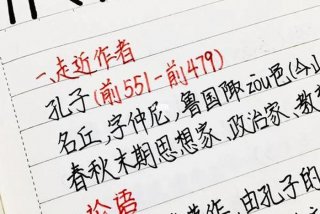 一、走近作者
孔子(前551-前479)
名丘,字仲尼,鲁国陬zōu邑(今山
春秋末期思想家、政治家、教
论语
作,由孔子的